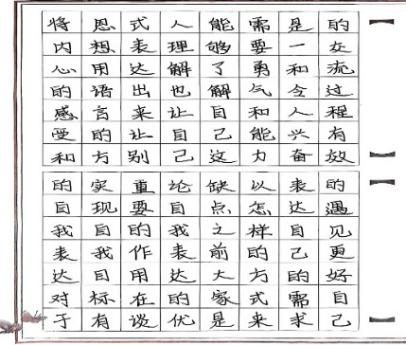 将内心的感受和
恩想用语言的方
式表达出来让别
人理解也让自己
能够了解自己这
需要勇气和能力
是一和令人兴奋
的在流过程有效
的自我表达对于
实现自我目标有
重要的作用在谈
论自我表达的优
缺点之前大家是
以怎样的方式来
表达自己的需求
的遇见更好自己